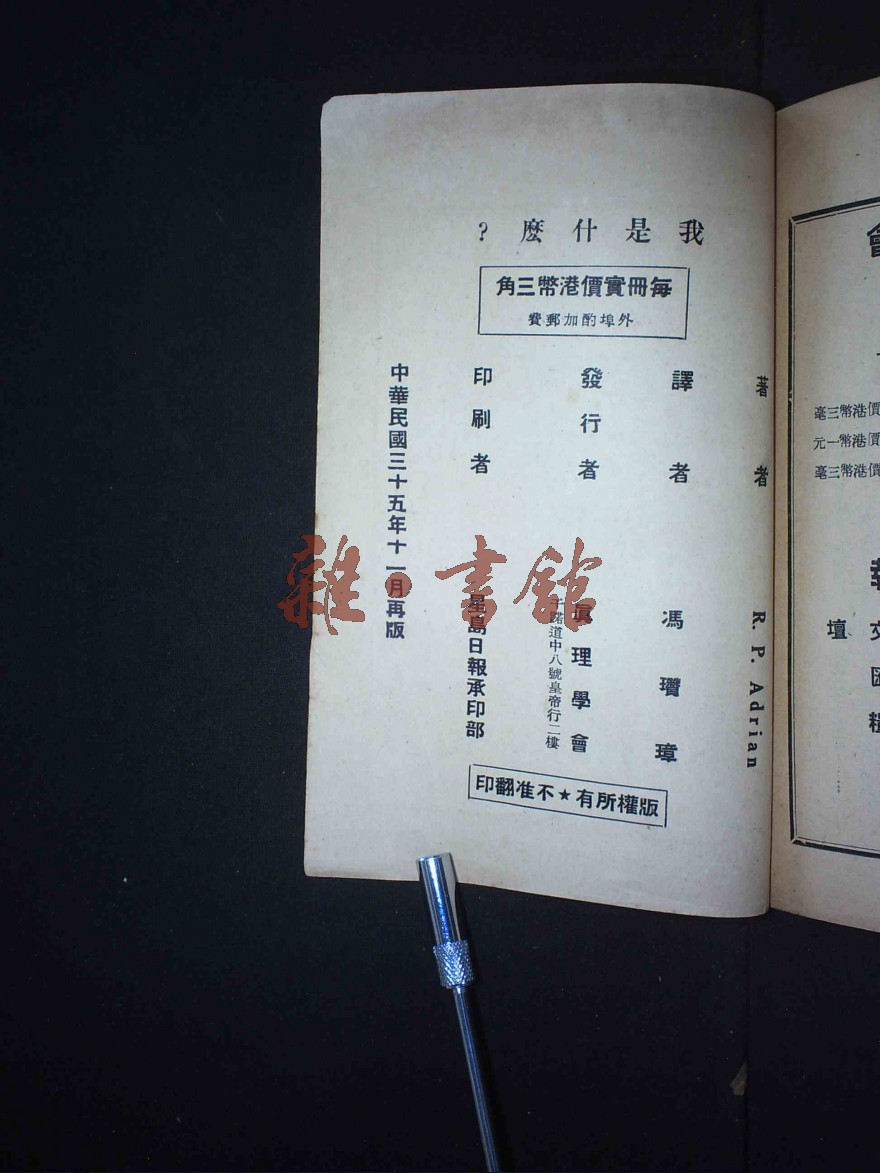 我是什麽?
每冊實價港幣三角
外埠酌加郵費
著者 R. P. Adrian
譯者 馮瓚璋
發行者 眞理學會
干諾道中八號皇帝行二樓
印刷者 星島日報承印部
中華民國三十五年十一月再版
版權所有★不准翻印
雜·書館
會
價港幣三毫
價港幣一元
價港幣三毫
文匯
糧
壇